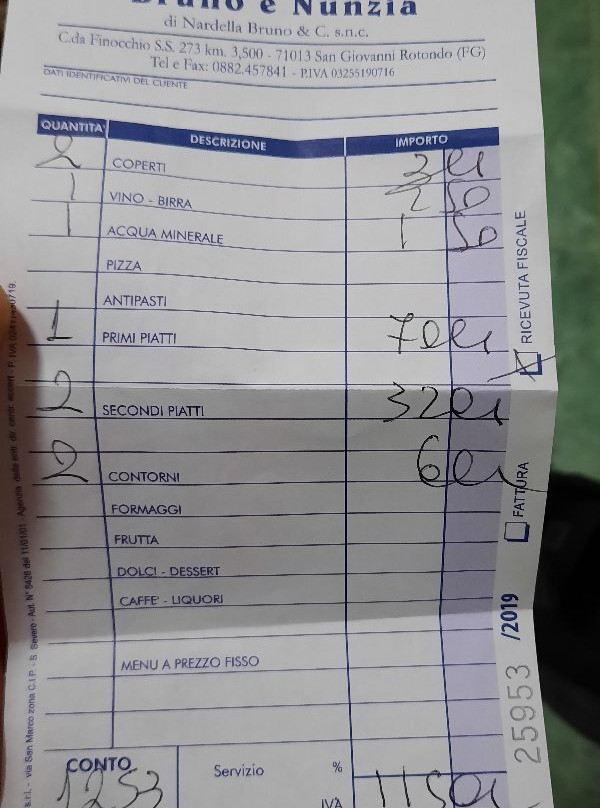 Bruno e Nunzia
di Nardella Bruno & C. s.n.c.
C.da Finocchio S.S. 273 km. 3,500 - 71013 San Giovanni Rotondo (FG)
Tel e Fax: 0882.457841 - P.IVA 03255190716
DATI IDENTIFICATIVI DEL CLIENTE
QUANTITA' DESCRIZIONE IMPORTO
2 COPERTI 3
1 VINO - BIRRA 2 50
1 ACQUA MINERALE 1 50
PIZZA
ANTIPASTI
1 PRIMI PIATTI 7 00
2 SECONDI PIATTI 32 00
2 CONTORNI 6 00
FORMAGGI
FRUTTA
DOLCI - DESSERT
CAFFE' - LIQUORI
MENU A PREZZO FISSO
CONTO Servizio %
1253 IVA
RICEVUTA FISCALE
FATTURA
25953 /2019
s.r.l. - via San Marco zona C.I.P. - S. Severo - Aut. N°